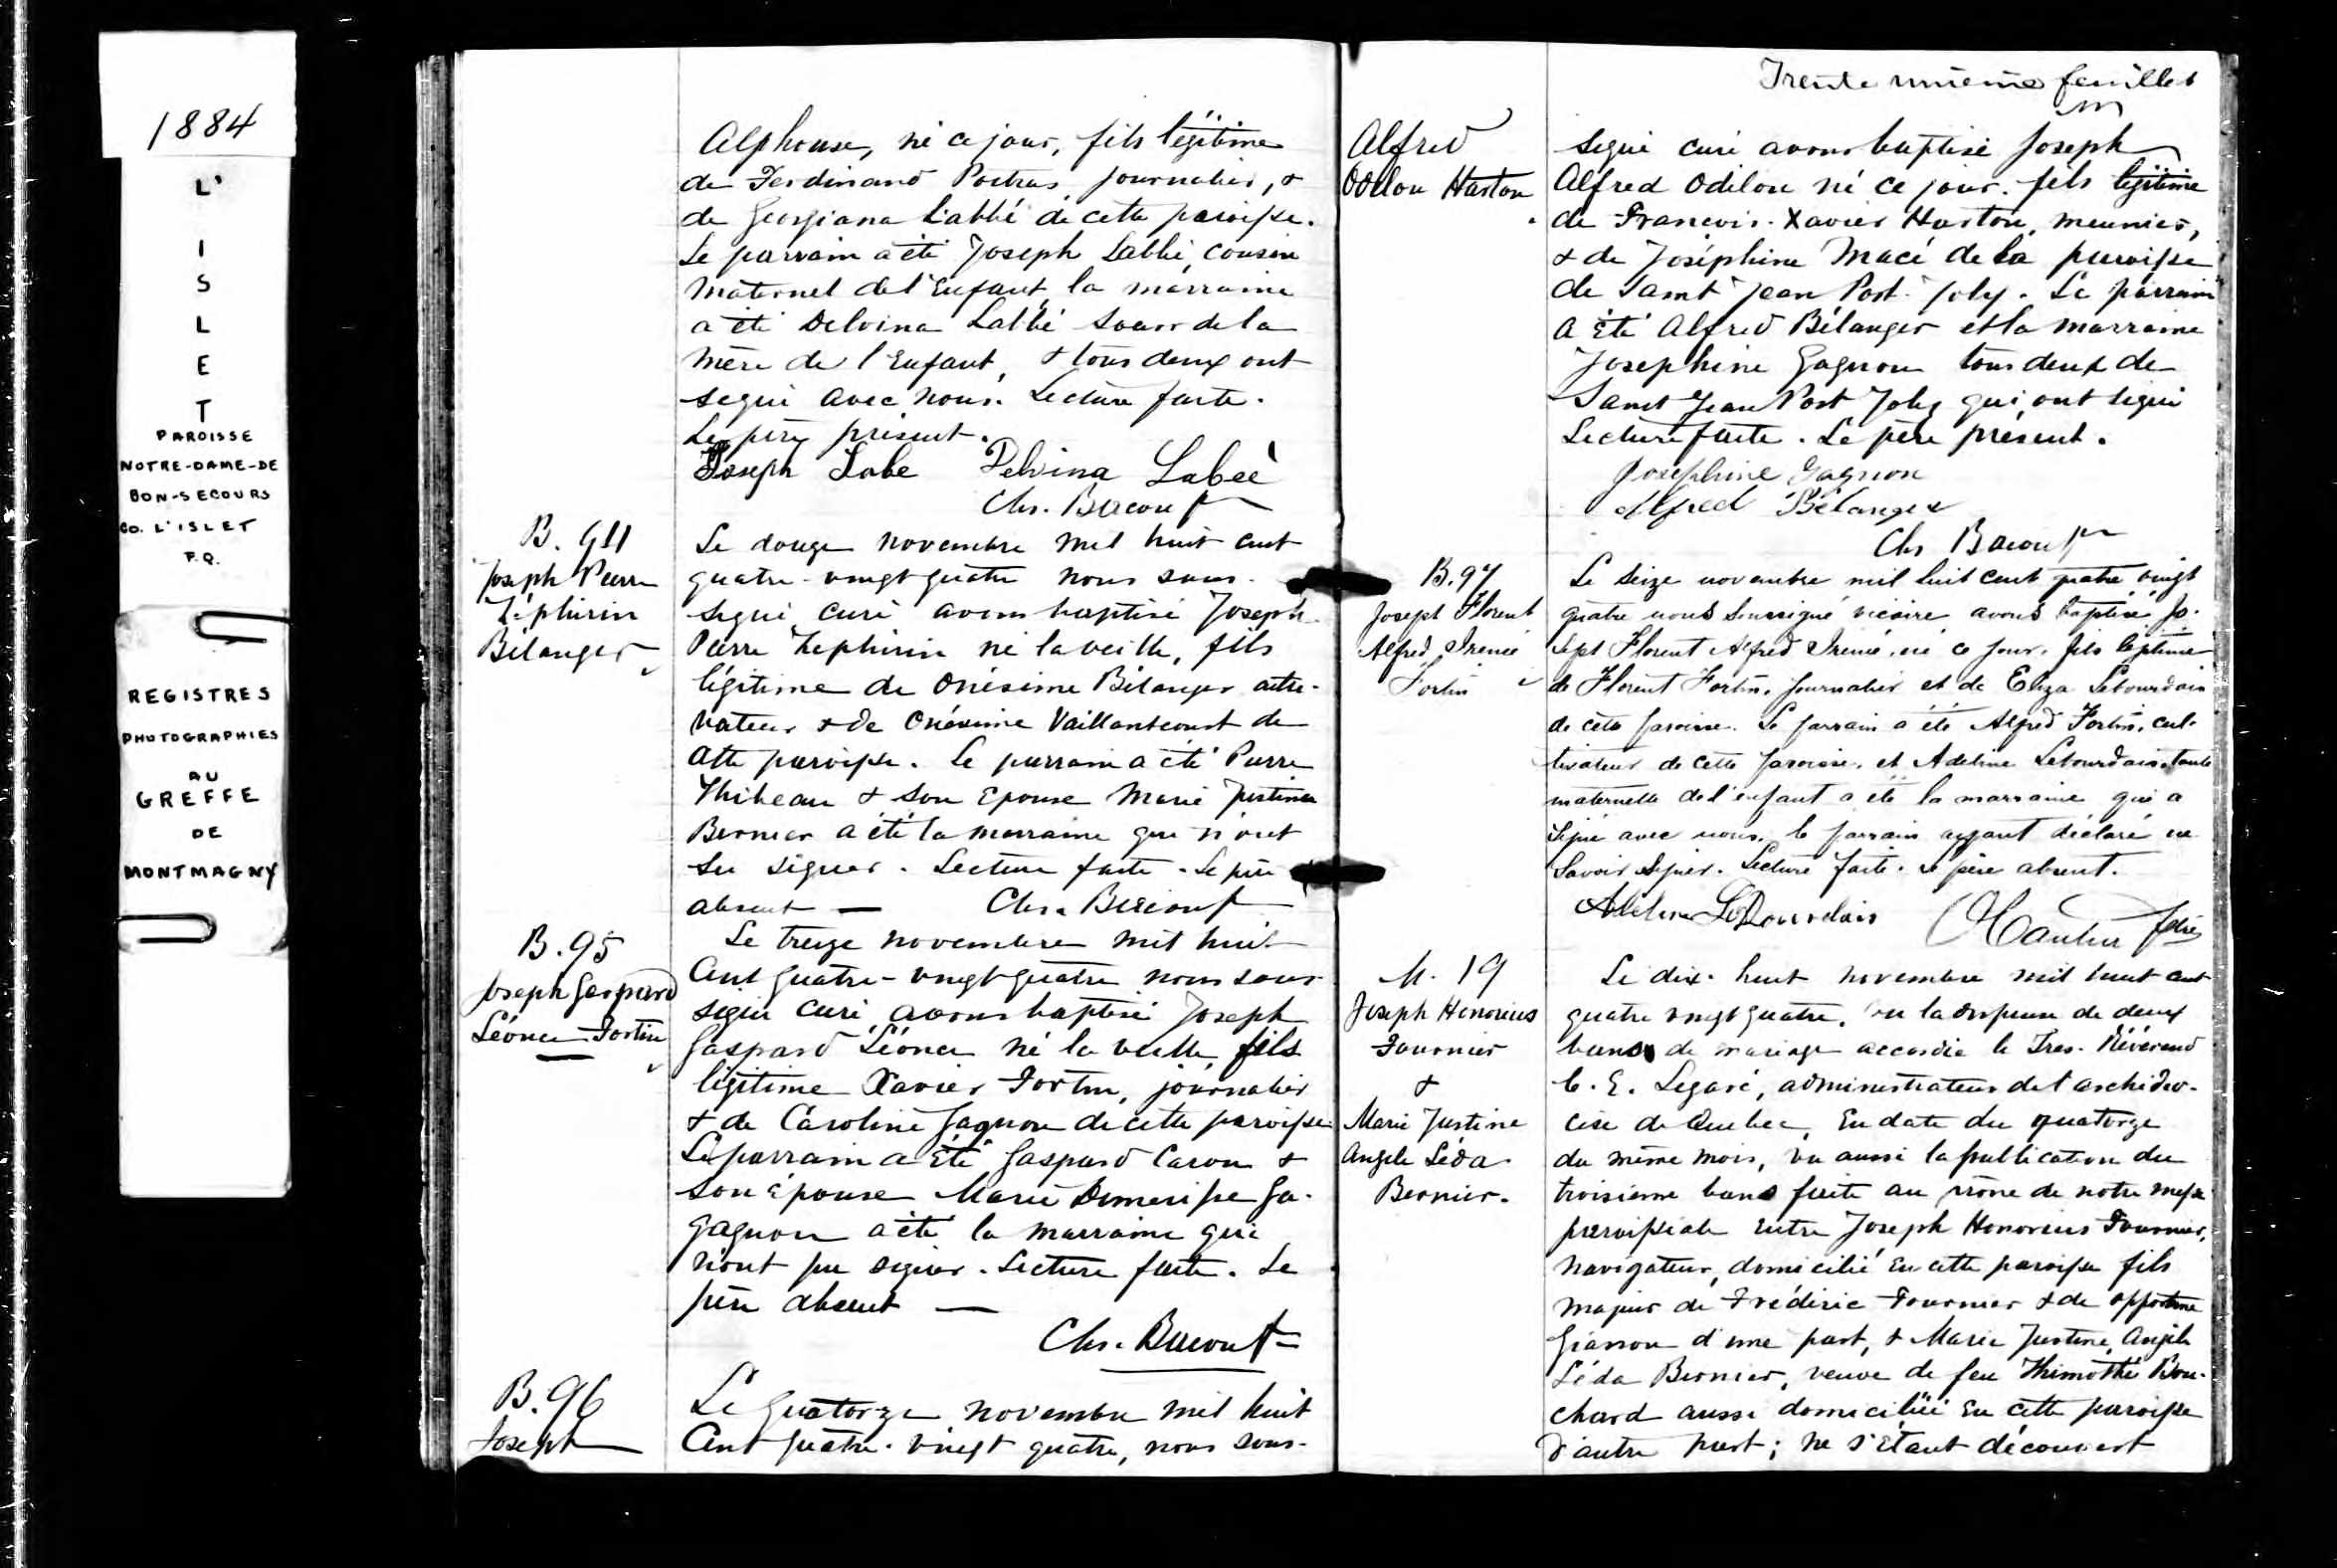 1884
L'
I
S
L
E
T
PAROISSE
NOTRE-DAME-DE
BON-SECOURS
Co. L'ISLET
P.Q.
REGISTRES
PHOTOGRAPHIES
AU
GREFFE
DE
MONTMAGNY
Alphonse, né ce jour, fils légitime
de Ferdinand Poitras, journalier, &
de Georgiana Labbé de cette paroisse.
Le parrain a été Joseph Labbé, cousin
maternel de l'Enfant, la marraine
a été Delvina Labbé soeur de la
mère de l'Enfant, & tous deux ont
signé avec nous. Lecture faite.
Le père présent.
Joseph Labe Delvina Labeè
Chs. Bacon ptr
B. 94
Joseph Pierre
Zéphirin
Bélanger
Le douze novembre mil huit cent
quatre-vingt quatre nous sous-
signé curé avons baptisé Joseph
Pierre Zephirin né la veille, fils
légitime de Onésime Bélanger culti-
vateur & de Onésime Vaillantcourt de
cette paroisse. Le parrain a été Pierre
Thibeau & son Epouse Marie Justine
Bernier a été la marraine qui n'ont
su signer. Lecture faite. Le père
absent — Chs. Bacon ptr
B. 95
Joseph Gaspard
Léonce Fortin
Le treize novembre mil huit
cent quatre-vingt quatre nous sous
signé curé avons baptisé Joseph
Gaspard Léonce né la veille fils
légitime Xavier Fortin, journalier
& de Caroline Gagnon de cette paroisse
Le parrain a été Gaspard Caron &
son épouse Marie Demerisse Ga-
gagnon a été la marraine qui
n'ont pu signer. Lecture faite. Le
père absent —
Chs. Bacon ptr
B. 96
Joseph
Le quatorze novembre mil huit
cent quatre-vingt quatre, nous sous-
Trente unième feuillet
Alfred
Odilon Harton
signé curé avons baptisé Joseph
Alfred Odilon né ce jour. fils légitime
de François-Xavier Harton, meunier,
& de Joséphine Macé de la paroisse
de Saint Jean Port-Joly. Le parrain
a été Alfred Bélanger et la marraine
Josephine Gagnon tous deux de
Saint Jean Port Joly qui ont signé
Lecture faite. Le père présent.
Josephine Gagnon
Alfred Bélanger
Chs Bacon ptr
B. 97
Joseph Florent
Alfred Irenée
Fortin
Le seize novembre mil huit cent quatre vingt
quatre nous soussigné vicaire avons baptisé Jo-
seph Florent Alfred Irené, né ce jour, fils légitime
de Florent Fortin, journalier et de Eliza Letourdain
de cette paroisse. Le parrain a été Alfred Fortin, cul-
tivateur de cette paroisse, et Adeline Letourdain, tante
maternelle de l'enfant a été la marraine qui a
signé avec nous, le parrain ayant déclaré ne
savoir signer. Lecture faite. Le père absent.
M. 19
Joseph Honorius
Fournier
&
Marie Justine
Angèle Léda
Bernier.
Le dix-huit novembre mil huit cent
quatre vingt quatre, vu la dispense de deux
bans de mariage accordée le Très-Révérend
C. E. Legaré, administrateur de l'archidio-
cèse de Quebec, En date du quatorze
du même mois, vu aussi la publication du
troisième bans faite au prône de notre messe
paroissiale entre Joseph Honorius Fournier,
navigateur, domicilié en cette paroisse fils
majeur de Frédéric Fournier & de opportune
Giasson d'une part, & Marie Justine, Angèle
Léda Bernier, veuve de feu Thimothé Bou-
chard aussi domiciliée en cette paroisse
d'autre part; ne s'étant découvert